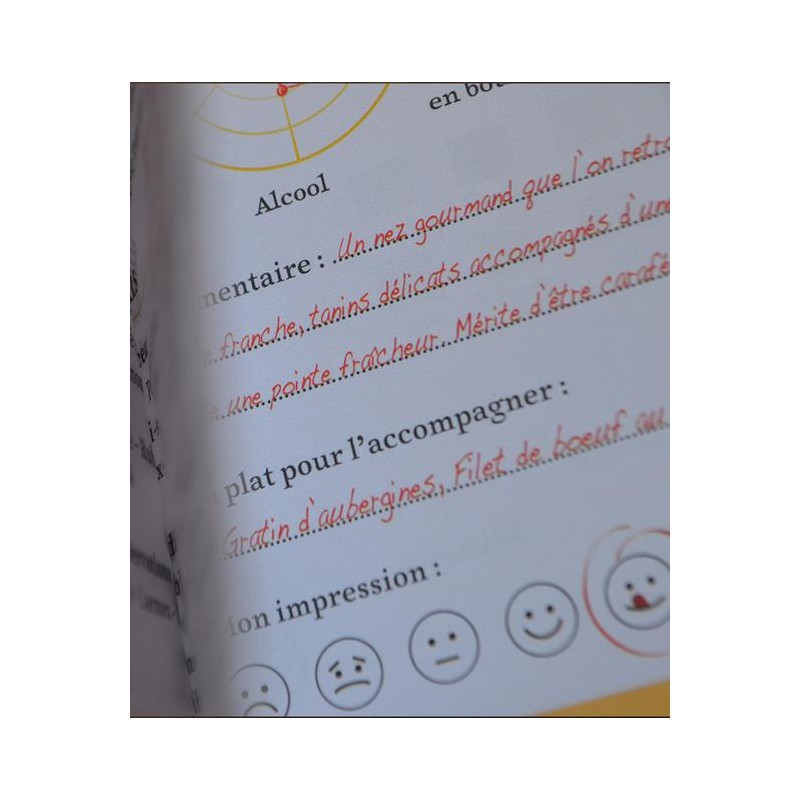 en
Alcool
mentaire : Un nez gourmand que l'on retro
franche, tanins délicats accompagnés d'une
une pointe fraîcheur. Mérite d'être carafé
plat pour l'accompagner :
Gratin d'aubergines, Filet de boeuf au
Mon impression :